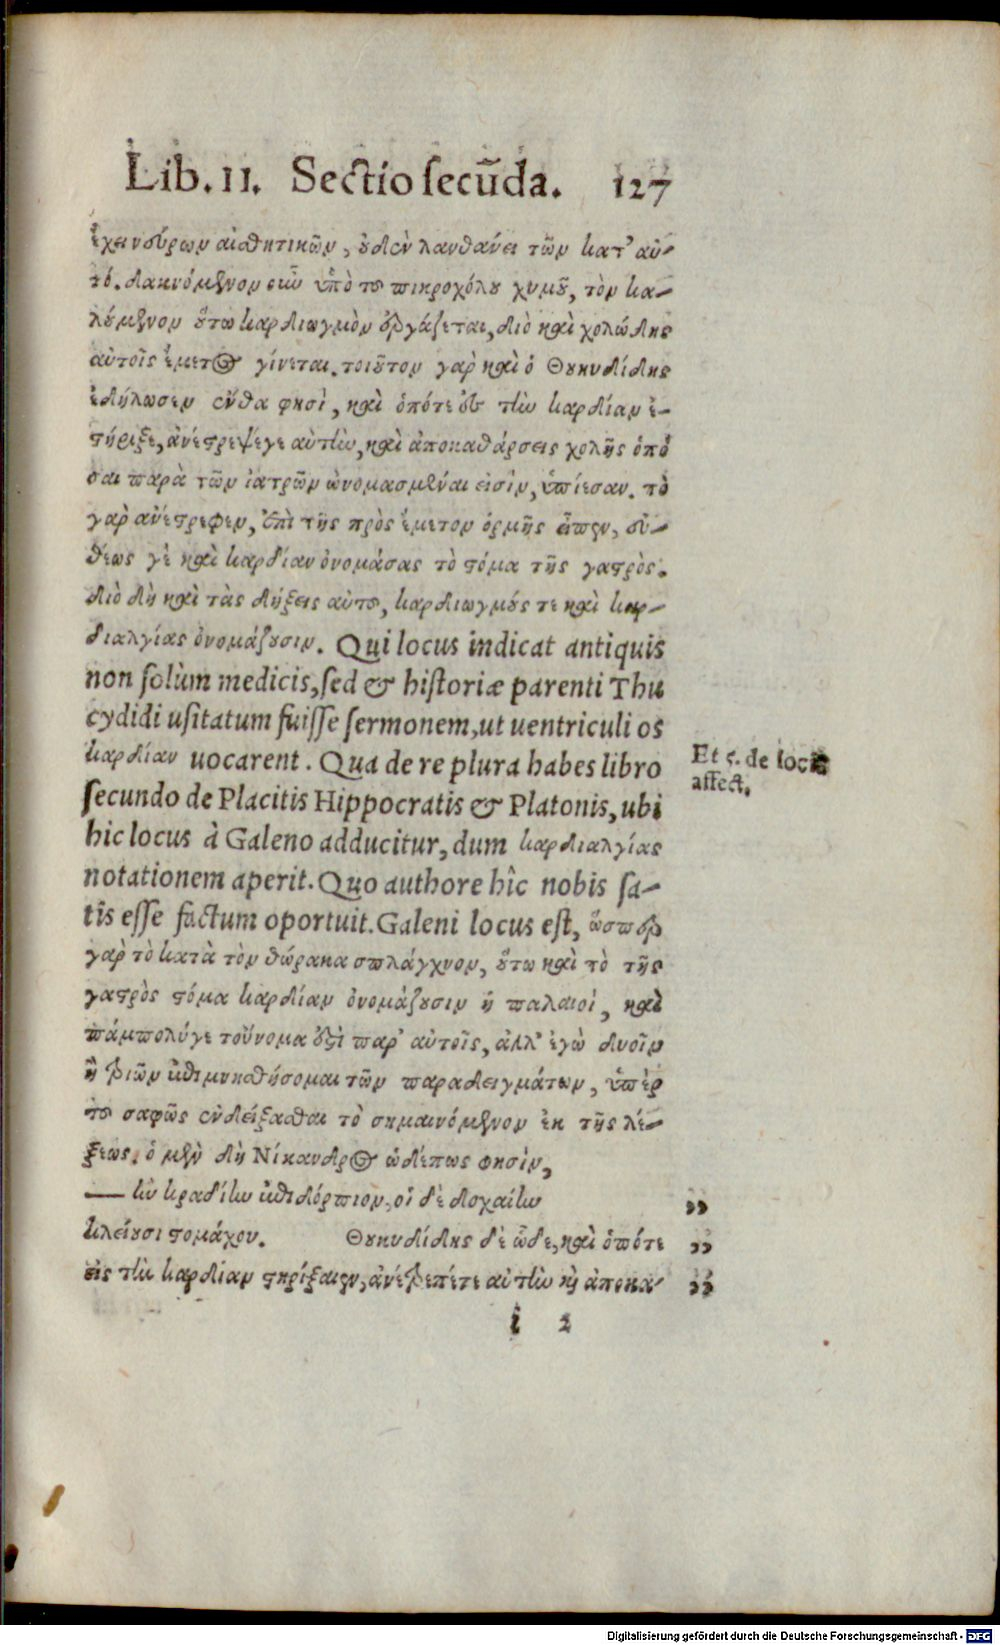 Lib. II. Sectio secũda. 127
ἔχει νεύρων αἰσθητικῶν, οὐδὲν λανθάνει τῶν κατ' αὐ-
τό. δακνόμενον οὖν ὑπὸ τοῦ πικροχόλου χυμοῦ, τὸν κα-
λούμενον οὕτω καρδιωγμὸν ἐργάζεται, διὸ καὶ χολώδης
αὐτοῖς ἔμετος γίνεται. τοιοῦτον γὰρ καὶ ὁ Θουκυδίδης
ἐδήλωσεν ἔνθα φησὶ, καὶ ὁπότε ἐς τὴν καρδίαν ἐ-
στήριξε, ἀνέστρεψέ γε αὐτὴν, καὶ ἀποκαθάρσεις χολῆς ὁπό
σαι παρὰ τῶν ἰατρῶν ὠνομασμέναι εἰσὶν, ὑπῄεσαν. τὸ
γὰρ ἀνέστρεφεν, ἐπὶ τῆς πρὸς ἔμετον ὁρμῆς εἶπεν, εὐ-
θέως γὲ καὶ καρδίαν ὀνομάσας τὸ στόμα τῆς γαστρὸς.
διὸ δὴ καὶ τὰς δήξεις αὐτοῦ, καρδιωγμούς τε καὶ καρ-
διαλγίας ὀνομάζουσιν. Qui locus indicat antiquis
non solùm medicis, sed & historiæ parenti Thu
cydidi usitatum fuisse sermonem, ut uentriculi os
καρδίαν uocarent. Qua de re plura habes libro
secundo de Placitis Hippocratis & Platonis, ubi
hic locus à Galeno adducitur, dum καρδιαλγίας
notationem aperit. Quo authore hîc nobis sa-
tis esse factum oportuit. Galeni locus est, ὥσπερ
γὰρ τὸ κατὰ τὸν θώρακα σπλάγχνον, οὕτω καὶ τὸ τῆς
γαστρὸς στόμα καρδίαν ὀνομάζουσιν ἡ παλαιοί, καὶ
πάμπολύ γε τοὔνομα ἐστὶ παρ' αὐτοῖς, ἀλλ' ἐγὼ δυοῖν
ἢ τριῶν ἐπιμνησθήσομαι τῶν παραδειγμάτων, ὑπὲρ
τοῦ σαφῶς ἐνδείξασθαι τὸ σημαινόμενον ἐκ τῆς λέ-
ξεως. ὁ μὲν δὴ Νίκανδρος ὡδέπως φησὶν,
— ἣν κραδίην ἐπιδόρπιον, οἱ δὲ δοχαίην
κλείουσι στομάχου. Θουκυδίδης δὲ ὧδε, καὶ ὁπότε
εἰς τὴν καρδίαν στηρίξαιεν, ἀνέτρεπέ τε αὐτὴν καὶ ἀποκα-
i 2
Et 5. de locis
affect.
„
„
„